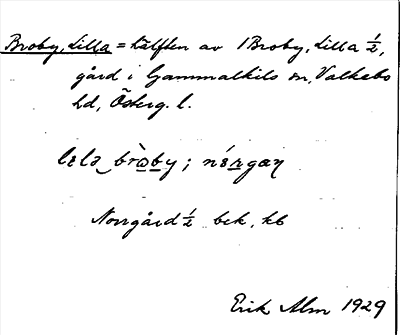 Broby, Lilla = hälften av 1 Broby, Lilla ½,
gård i Gammalkils sn, Valkebo
hd, Österg. l.
lɛlə brò̱ḇy; nó̱ṟgaɳ
Norrgård ½ bek, kb
Erik Alm 1929